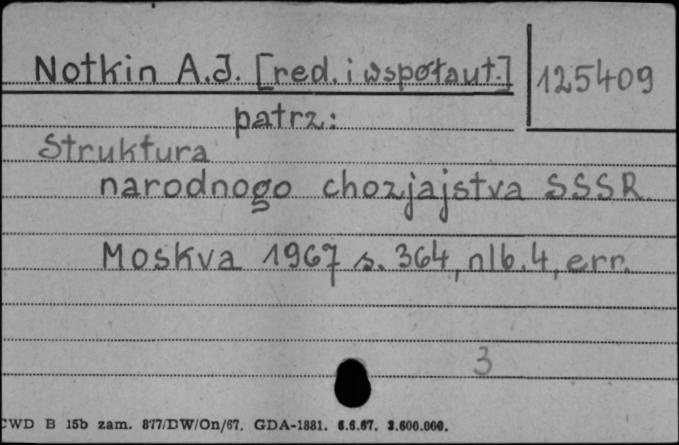 Notkin A.J. [red. i współaut.]
125409
patrz:
Struktura
narodnogo chozjajstva SSSR.
Moskva 1967 s. 364, nlb. 4, err.
3
CWD B 15b zam. 877/DW/On/67. GDA-1881. 6.6.67. 3.600.000.